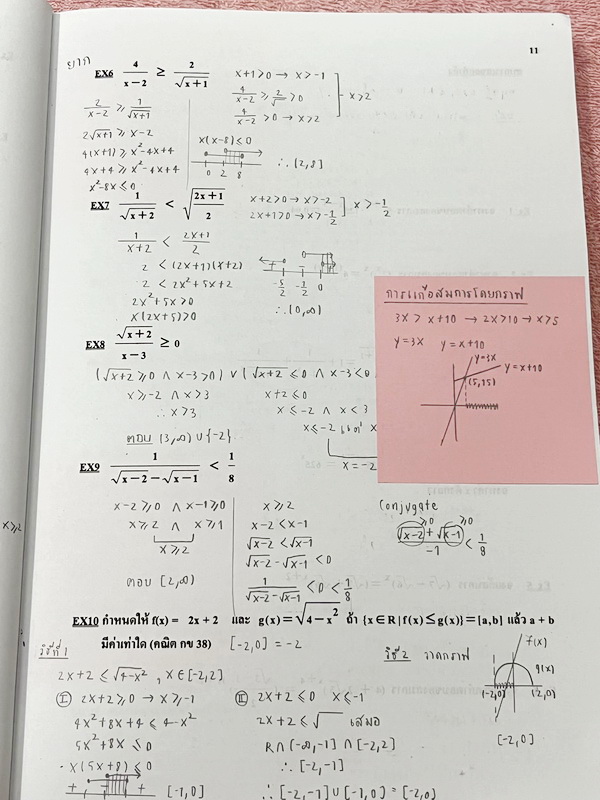 11
ยาก
EX6 4/(x−2) ≥ 2/√(x+1)
x+1>0 → x>-1
4/(x-2) ≥ 2/√ > 0
4/(x-2) > 0 → x>2
x>2
2/(x-2) ≥ 1/√(x+1)
2√(x+1) ≥ x-2
4(x+1) ≥ x²-4x+4
4x+4 ≥ x²-4x+4
x²-8x ≤ 0
x(x-8) ≤ 0
0 2 8
∴ [2,8]
EX7 1/√(x+2) < √((2x+1)/2)
x+2>0 → x>-2
2x+1>0 → x>-1/2
x>-1/2
1/(x+2) < (2x+1)/2
2 < (2x+1)(x+2)
2 < 2x²+5x+2
2x²+5x>0
x(2x+5)>0
-5/2 -1/2 0
∴ (0,∞)
การแก้อสมการโดยกราฟ
3x > x+10 → 2x>10 → x>5
y=3x y=x+10
y=3x
y=x+10
(5,15)
EX8 √(x+2)/(x−3) ≥ 0
(√(x+2) ≥ 0 ∧ x-3>0) ∨ (√(x+2) ≤ 0 ∧ x-3<0
x≥-2 ∧ x>3
∴ x>3
x+2≤0
x≤-2 ∧ x<3
x≤-2
x=-2
ตอบ (3,∞)∪{-2}
EX9 1/(√(x−2) − √(x−1)) < 1/8
x-2≥0 ∧ x-1≥0
x≥2 ∧ x≥1
x≥2
ตอบ [2,∞)
x≥2
x-2 < x-1
√(x-2) < √(x-1)
√(x-2) - √(x-1) < 0
1/(√(x-2) - √(x-1)) < 0 < 1/8
Conjugate
≥0 ≥0
(√(x-2) + √(x-1))/-1 < 1/8
x≥2
EX10 กำหนดให้ f(x) = 2x + 2 และ g(x) = √(4 − x²) ถ้า {x∈R | f(x) ≤ g(x)} = [a,b] แล้ว a + b
มีค่าเท่าใด (คณิต กข 38) [-2,0] = -2
วิธีที่ 1
2x+2 ≤ √(4-x²) , x∈[-2,2]
I 2x+2≥0 → x≥-1
4x²+8x+4 ≤ 4-x²
5x²+8x ≤ 0
x(5x+8) ≤ 0
[-1,0]
II 2x+2 ≤ 0 x≤-1
2x+2 ≤ √ เสมอ
R∩(-∞,-1]∩[-2,2]
∴ [-2,-1]
∴ [-2,-1]∪[-1,0] = [-2,0]
วิธี 2 วาดกราฟ
f(x)
g(x)
(-2,0) (2,0)
[-2,0]